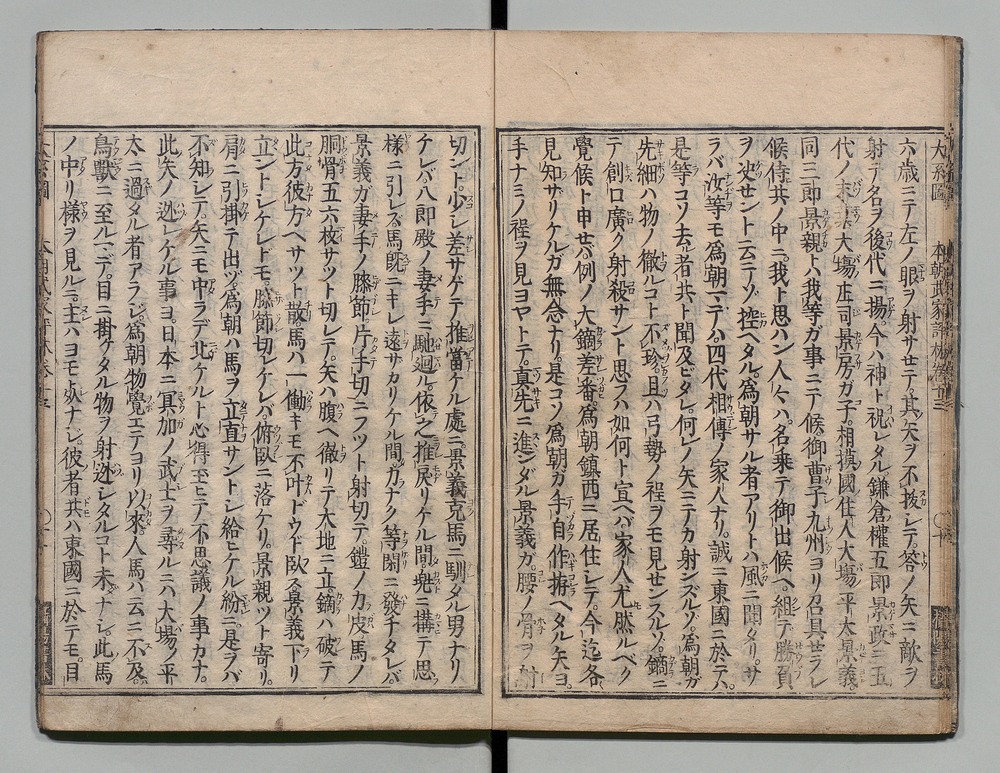 六歳ニテ左ノ眼ヲ射サセテ其矢ヲ不抜シテ答ノ矢ニ敵ヲ
射テ名ヲ後代ニ揚今ハ神ト祝レタル鎌倉權五郎景政ニ五
代ノ末葉大塲庄司景房ガ子相摸國住人大塲平太景義
同三郎景親トハ我等ガ事ニテ候御曹子九州ヨリ召具セラレ
候侍共ノ中ニ我ト思ハン人々ハ名乗テ御出候ヘ組テ勝負
ヲ决セントニ云テゾ控ヘタル爲朝サル者アリトハ風ニ聞タリサ
ラバ汝等モ爲朝ニテハ四代相傳ノ家人ナリ誠ニ東國ニ於テハ
是等コソ去者共ト聞及ビタレ何レノ矢ニテカ射ンズルゾ爲朝ガ
先細ハ物ノ徹ルコト不珍且ハ弓勢ノ程ヲモ見センスルゾ鏑ニ
テ創口廣ク射殺サント思フハ如何ト宣ヘバ家人尤然ルベク
覺候ト申セバ例ノ大鏑差番爲朝鎮西ニ居住シテ今迄各
見知サリケルガ無念ナリ是コソ爲朝ガ手自作拵ヘタル矢ヨ
手ナミノ程ヲ見ヨヤトテ真先ニ進ンダル景義ガ腰ノ骨ヲ射
切ント少シ差サゲテ推當ケル處ニ景義克馬ニ馴タル男ナリ
ケレバ八郎殿ノ妻手ニ馳廻ル依之推戻リケル間兠ニ搆テ思
様ニ引レズ馬既ニキレ遠サカリケル間カナク等閑ニ發チタレバ
景義ガ妻手ノ膝節片手切ニフツト射切テ鐙ノカ皮馬ノ
胴骨五六枚サツト切レテ矢ハ腹ヘ徹リテ大地ニ立鏑ハ破テ
此方彼方ヘサツト散馬ハ一働キモ不叶ドウド臥ス景義下リ
立ントシケレドモ膝節切レケレバ俯臥ニ落ケリ景親ツト寄リ
肩ニ引掛テ出ヅ爲朝ハ馬ヲ立直サントシ給ヒケル紛ニ是ヲバ
不知シテ矢ニモ中ラデ北ケルト心得玉ヒテ不思議ノ事カナ
此矢ノ迯レケル事ヨ日本ニ冥加ノ武士ヲ尋ルニハ大場ノ平
太ニ過タル者アラジ爲朝物覺エテヨリ以來人馬ハ云ニ不及
鳥獸ニ至ルマデ目ニ掛タル物ヲ射迯レタルコト未ナシ此馬
ノ中リ様ヲ見ルニ主ハヨモ死ナジ彼者共ハ東國ニ於テモ目